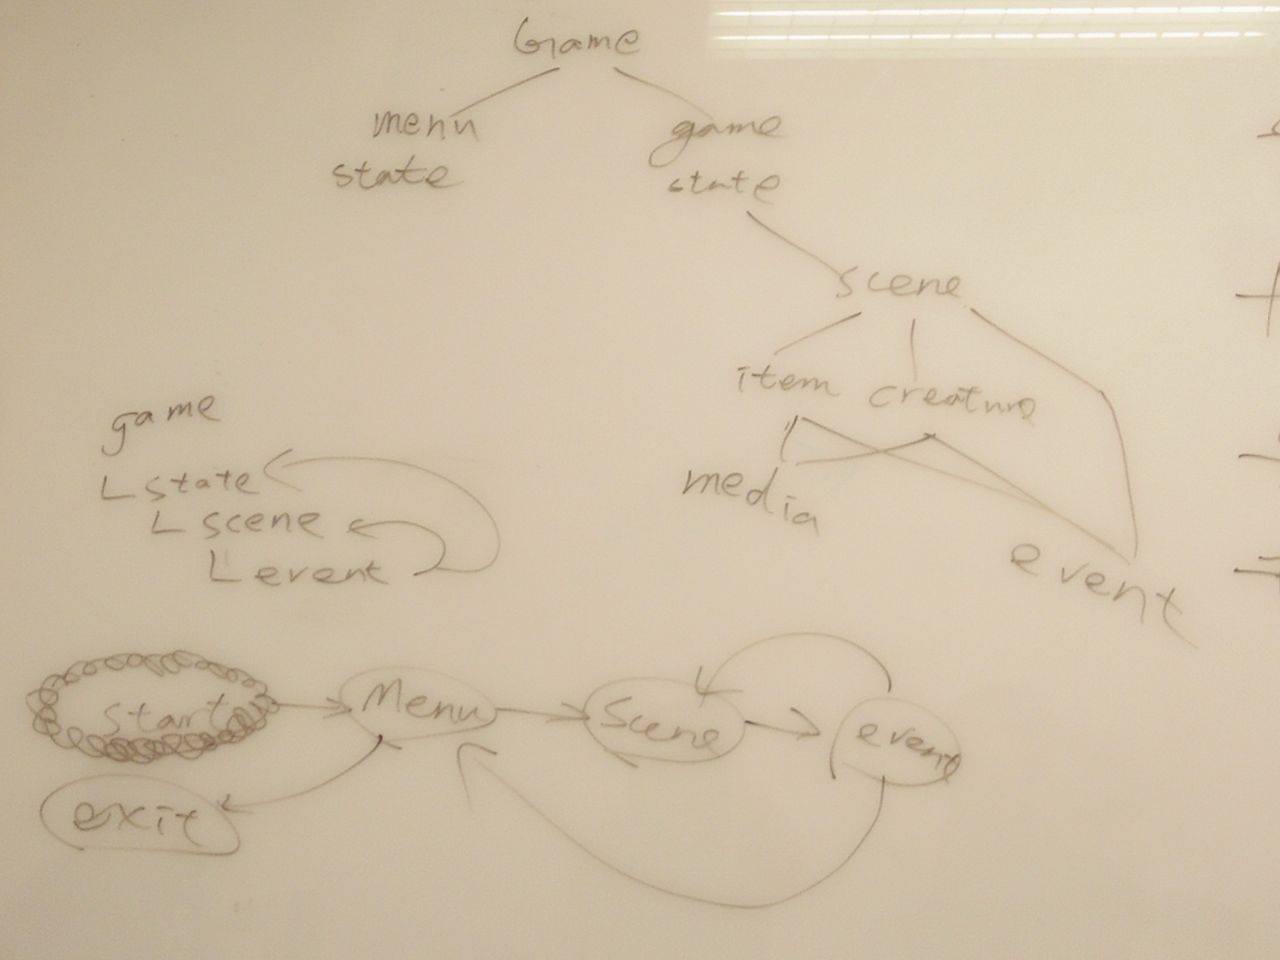 Game
menu
state
game
state
scene
item creature
media
event
game
L state
L scene
L event
start
Menu
Scene
event
exit